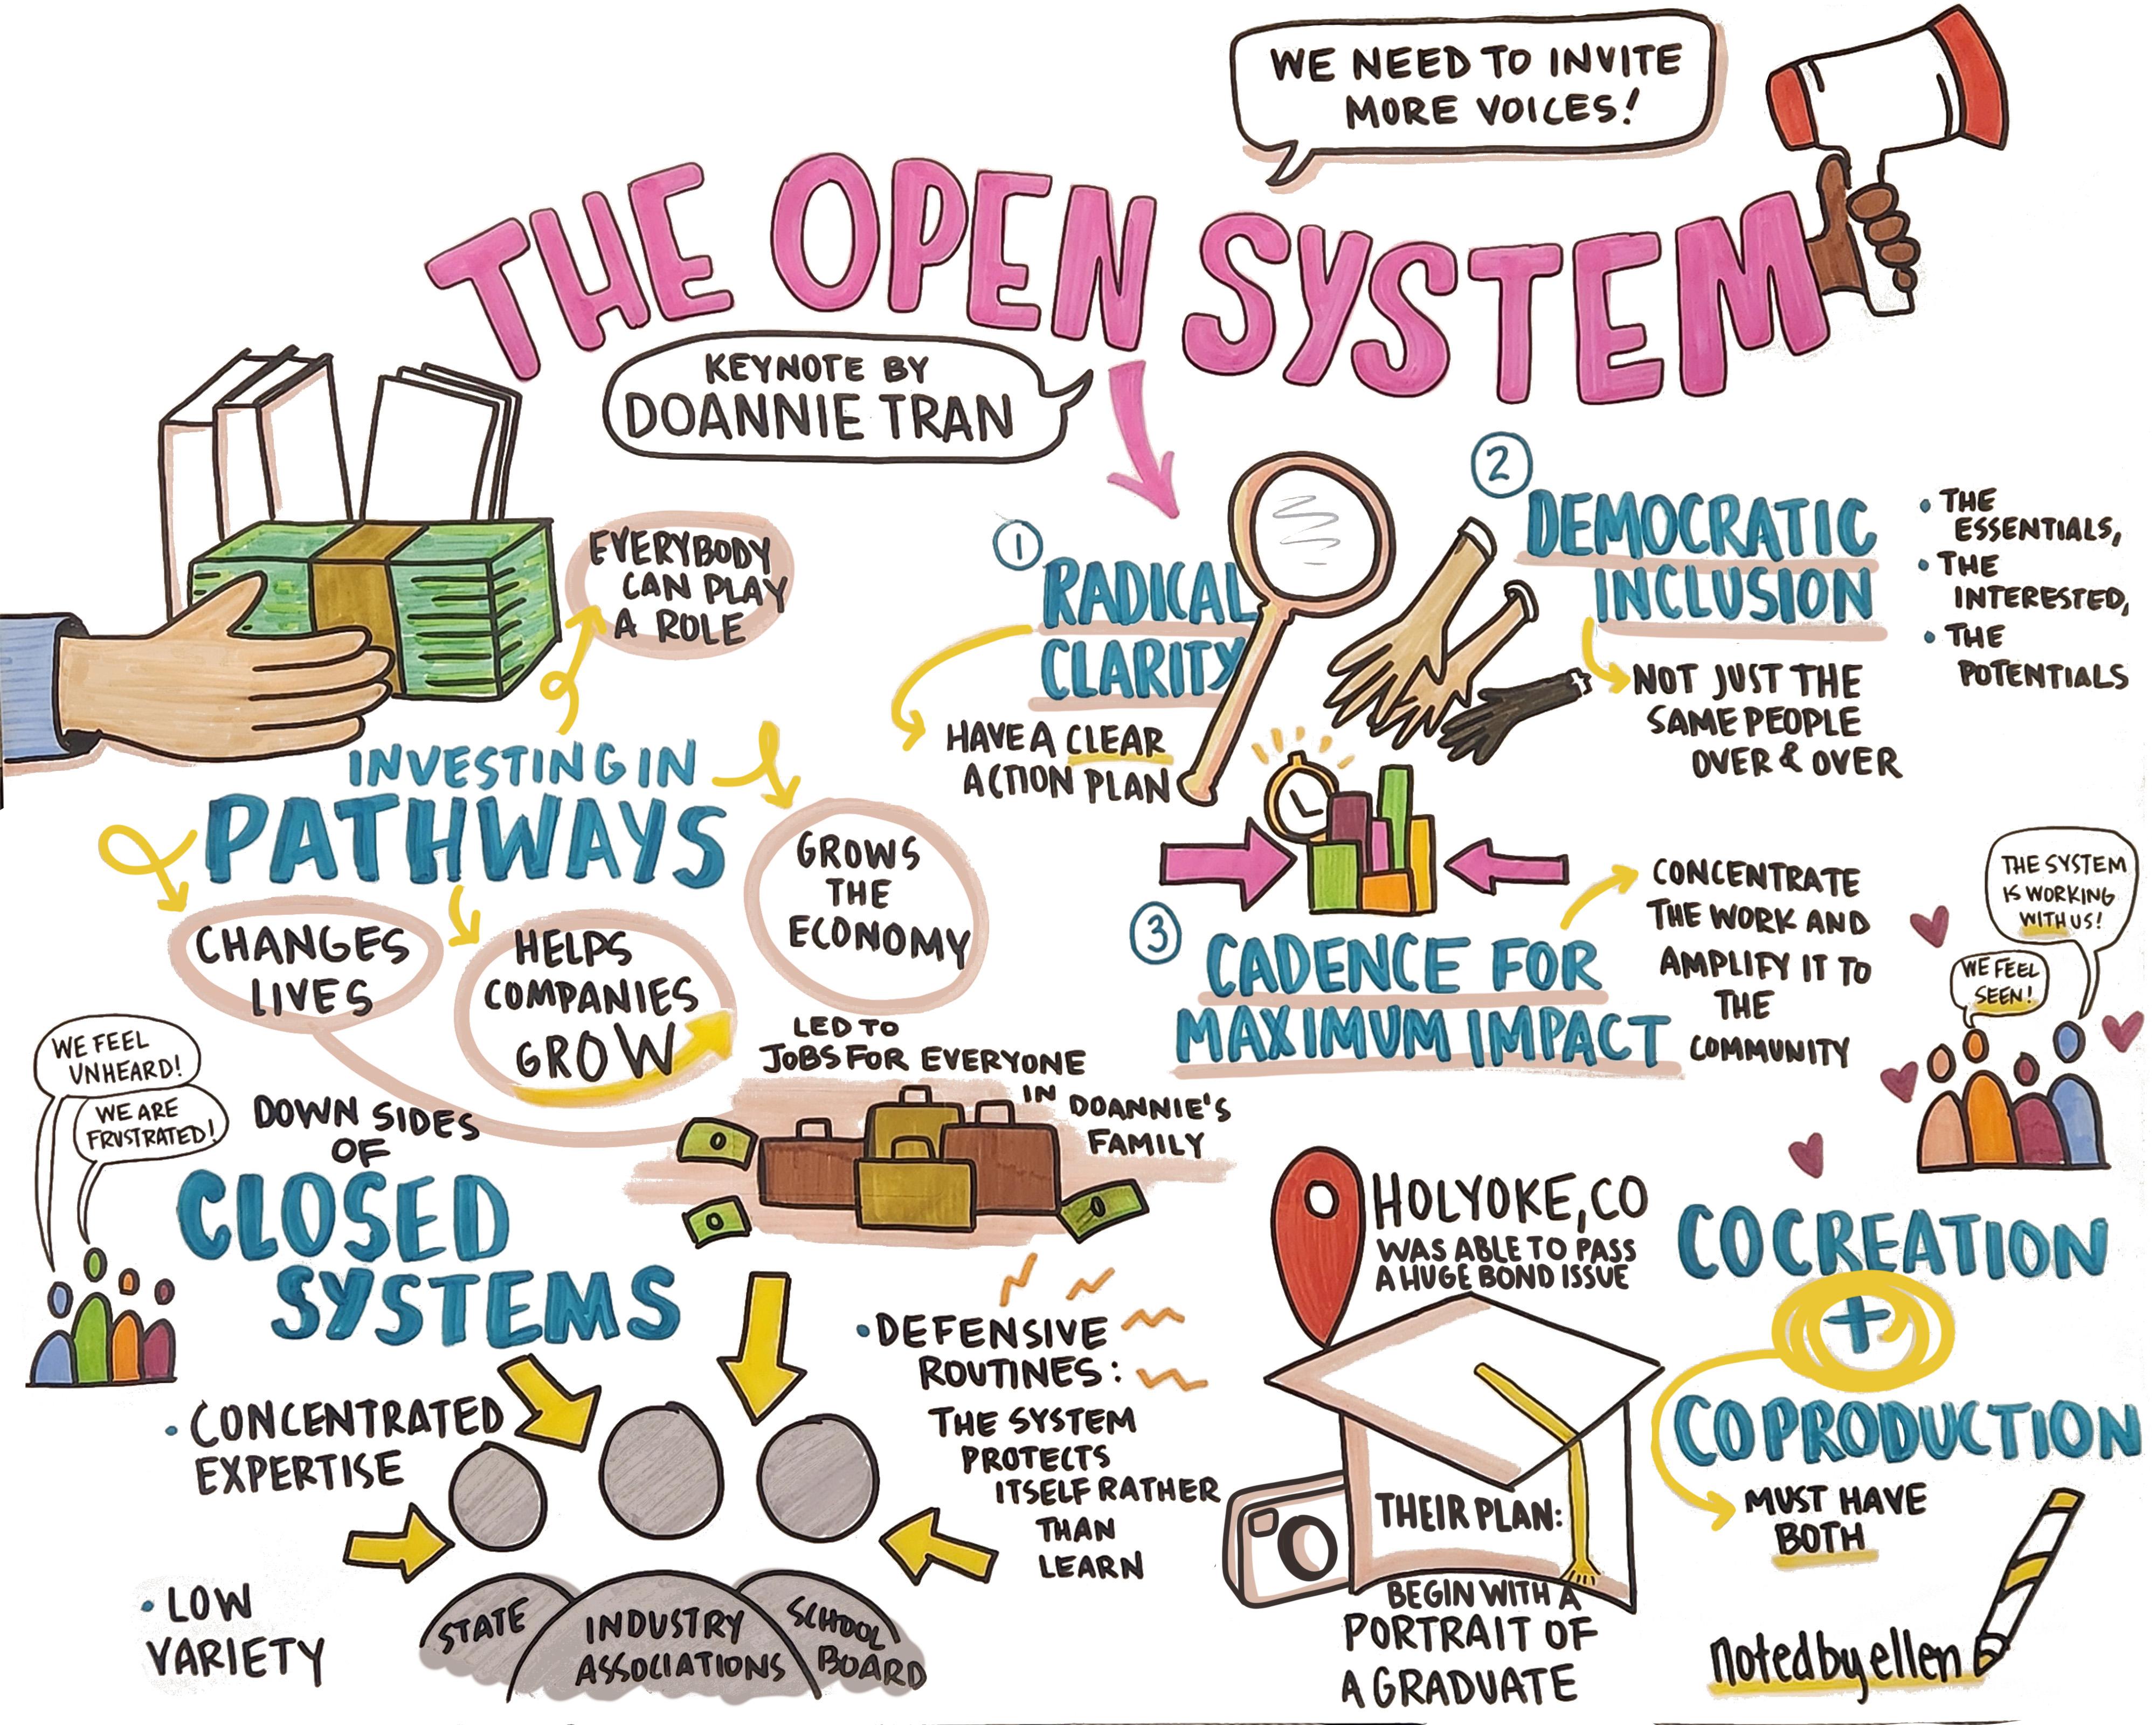 WE NEED TO INVITE
MORE VOICES!
THE OPEN SYSTEM
KEYNOTE BY
DOANNIE TRAN
EVERYBODY
CAN PLAY
A ROLE
INVESTING IN
PATHWAYS
CHANGES
LIVES
HELPS
COMPANIES
GROW
GROWS
THE
ECONOMY
LED TO
JOBS FOR EVERYONE
IN DOANNIE'S
FAMILY
1
RADICAL
CLARITY
HAVE A CLEAR
ACTION PLAN
2
DEMOCRATIC
INCLUSION
• THE
ESSENTIALS,
• THE
INTERESTED,
• THE
POTENTIALS
NOT JUST THE
SAME PEOPLE
OVER & OVER
3
CADENCE FOR
MAXIMUM IMPACT
CONCENTRATE
THE WORK AND
AMPLIFY IT TO
THE
COMMUNITY
THE SYSTEM
IS WORKING
WITH US!
WE FEEL
SEEN!
WE FEEL
UNHEARD!
WE ARE
FRUSTRATED!
DOWN SIDES
OF
CLOSED
SYSTEMS
• CONCENTRATED
EXPERTISE
• LOW
VARIETY
• DEFENSIVE
ROUTINES:
THE SYSTEM
PROTECTS
ITSELF RATHER
THAN
LEARN
STATE
INDUSTRY
ASSOCIATIONS
SCHOOL
BOARD
HOLYOKE, CO
WAS ABLE TO PASS
A HUGE BOND ISSUE
THEIR PLAN:
BEGIN WITH A
PORTRAIT OF
A GRADUATE
COCREATION
+
COPRODUCTION
MUST HAVE
BOTH
notedbyellen